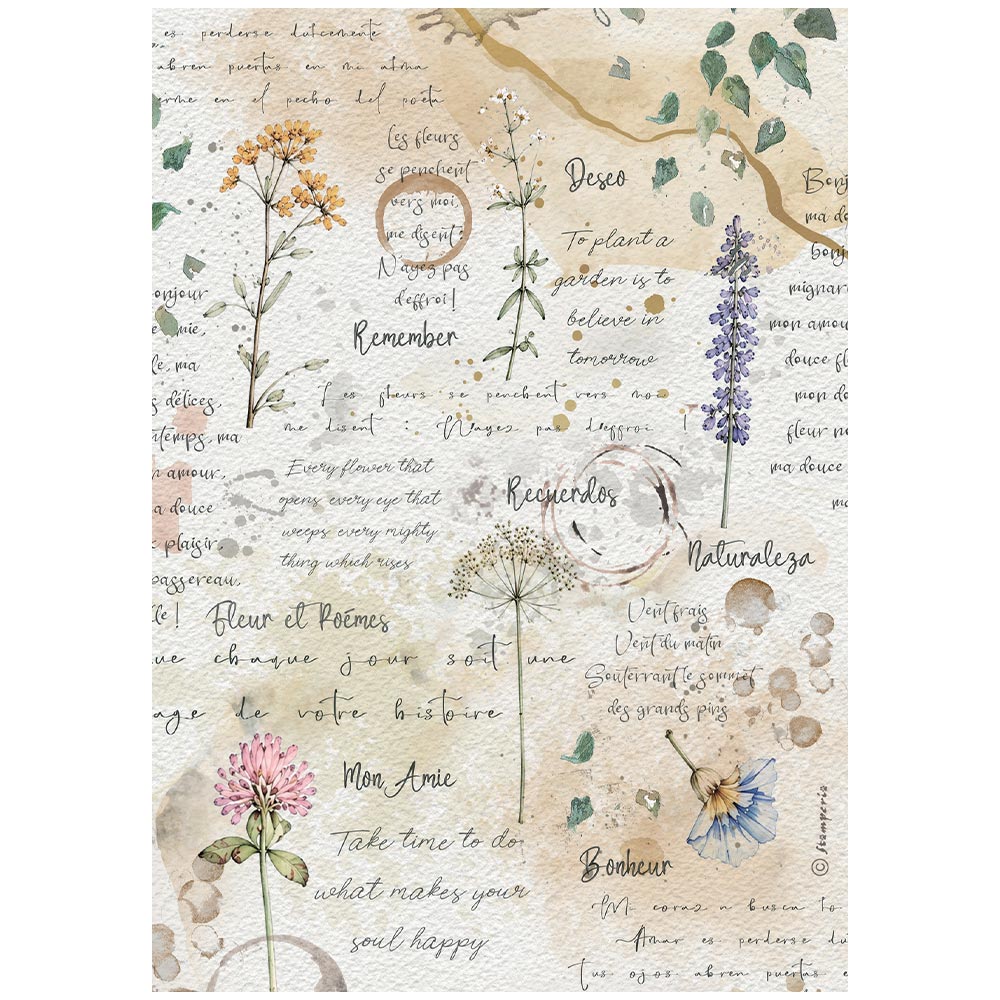 es perderse dulcemente
abren puertas en mi alma
erme en el pecho del poeta
Les fleurs
se penchent
vers moi,
me disent :
N'ayez pas
d'effroi!
Deseo
To plant a
garden is to
believe in
tomorrow
Bonj
ma do
bonj
mignar
mon amou
douce fl
mon do
fleur no
ma douce
ma
onjour
mie,
le, ma
s délices,
ntemps, ma
n amour,
a douce
plaisir,
passereau,
le !
Remember
Les fleurs se penchent vers moi
me disent : N'ayez pas d'effroi !
Every flower that
opens every eye that
weeps every mighty
thing which rises
Recuerdos
Naturaleza
Fleur et Poémes
ue chaque jour soit une
age de votre histoire
Vent frais
Vent du matin
Souterrant le sommet
des grands pins
Mon Amie
Take time to do
what makes your
soul happy
Bonheur
Mi coraz n busca lo
Amar es perderse du
Tus ojos abren puertas e
© Stamperia